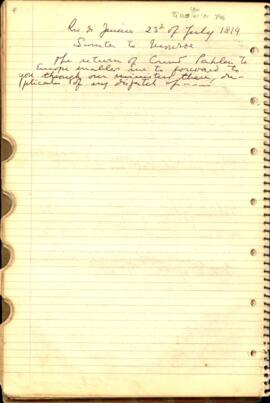 Rio de Janeiro 23d of July 1814
Sumter to Monroe
The return of Count Pahlen to
Europe enables me to forward to
you through our ministers there, du-
plicates of my dispatch of